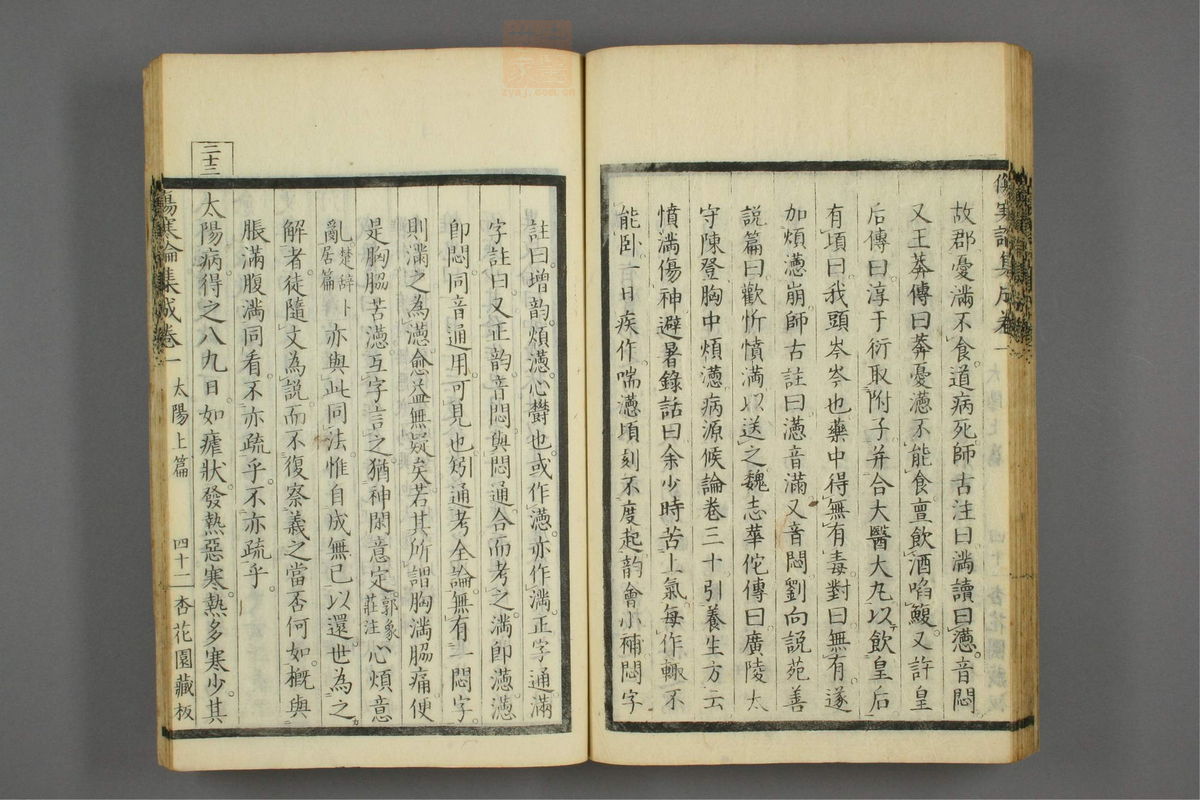 故郡憂滿不食道病死師古注曰滿讀曰懣音悶
又王莽傳曰莽憂懣不能食亶飲酒啗鰒又許皇
后傳曰淳于衍取附子并合大醫大丸以飲皇后
有頃曰我頭岑岑也藥中得無有毒對曰無有遂
加煩懣崩師古註曰懣音滿又音悶劉向說苑善
說篇曰歡忻憤滿以送之魏志華佗傳曰廣陵太
守陳登胸中煩懣病源候論卷三十引養生方云
憤滿傷神避暑錄話曰余少時苦上氣每作輒不
能卧一日疾作喘懣頃刻不度起韵會小補悶字
註曰增韵煩懣心欝也或作懣亦作滿正字通滿
字註曰又正韵音悶與悶通合而考之滿即懣懣
即悶同音通用可見也矧通考全論無有一悶字
則滿之為懣愈益無疑矣若其所謂胸滿脇痛便
是胸脇苦懣互字言之猶神閑意定郭象莊注心煩意
亂楚辞卜居篇亦與此同法惟自成無已以還世為之
解者徒隨文為說而不復察義之當否何如概與
脹滿腹滿同看不亦疏乎不亦疏乎
三十三
太陽病得之八九日如瘧狀發熱惡寒熱多寒少其
傷寒論集成卷一 太陽上篇 四十二 杏花園藏板